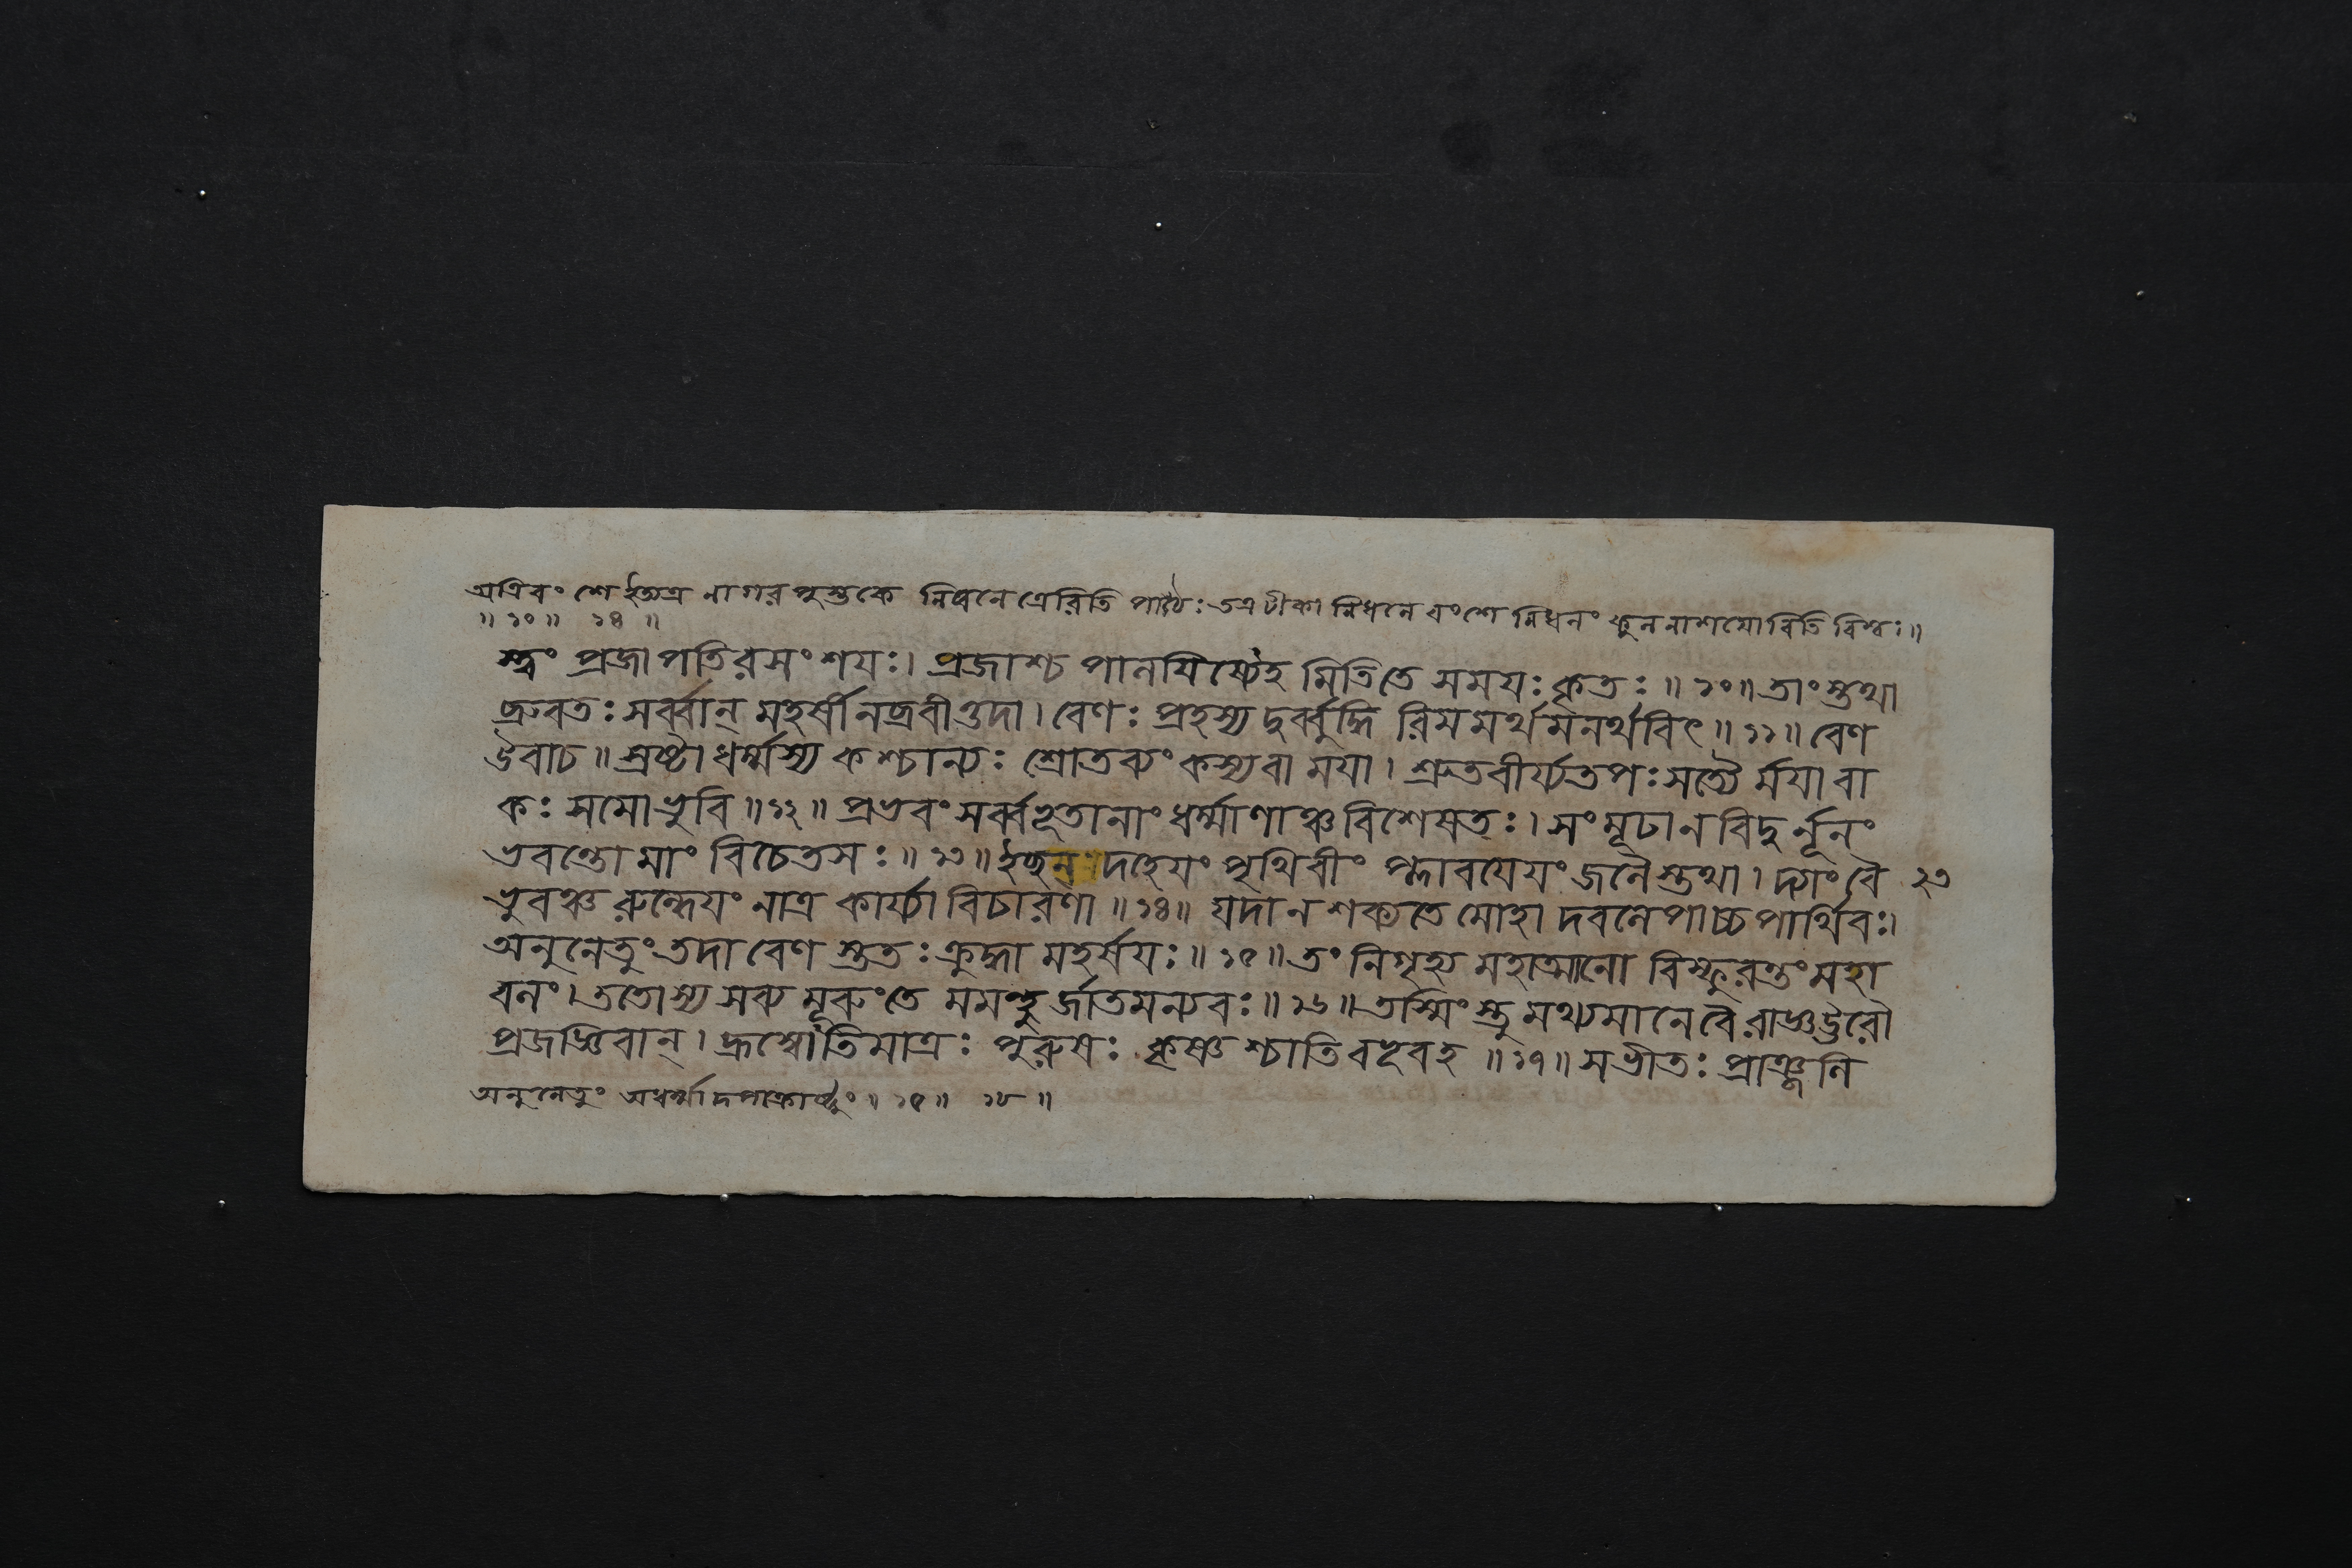 অত্রিবংশে ইত্যত্র নাগরপুস্তকে নিধনেত্রেরিতি পাঠঃ তত্র টীকা নিধনে বংশে নিধনং কুলনাশয়োরিতি বিশ্বঃ॥
॥ ১০॥ ১৪ ॥
স্ত্বং প্রজাপতিরসংশযঃ। প্রজাশ্চ পালযিষ্যেহমিতি তে সমযঃ কৃতঃ॥ ১০॥ তাংস্তথা
ব্রুবতঃ সর্ব্বান্ মহর্ষীনব্রবীত্তদা। বেণঃ প্রহস্য দুর্ব্বুদ্ধিরিমমর্থমনর্থবিৎ॥ ১১॥ বেণ
উবাচ॥ স্রষ্টা ধর্ম্মস্য কশ্চান্যঃ শ্রোতব্যং কস্য বা মযা। শ্রুতবীর্য্যতপঃসত্যৈর্মযা বা
কঃ সমো ভুবি॥ ১২॥ প্রভবং সর্ব্বভূতানাং ধর্ম্মাণাঞ্চ বিশেষতঃ। সংমূঢা ন বিদুর্নূনং
ভবন্তো মাং বিচেতসঃ॥ ১৩॥ ইচ্ছন্ দহেযং পৃথিবীং প্লাবযেযং জলৈস্তথা। দ্যাং বৈ ২৩
ভুবঞ্চ রুন্ধেযং নাত্র কার্য্যা বিচারণা॥ ১৪॥ যদা ন শক্যতে মোহাদবলেপাচ্চ পার্থিবঃ।
অনুনেতুং তদা বেণস্ততঃ ক্রুদ্ধা মহর্ষযঃ॥ ১৫॥ তং নিগৃহ্য মহাত্মানো বিস্ফুরন্তং মহা
বলং। ততোস্য সব্যমূরুং তে মমন্থুর্জাতমন্যবঃ॥ ১৬॥ তস্মিংস্তু মথ্যমানে বৈ রাজ্ঞ ঊরৌ
প্রজজ্ঞিবান্। হ্রস্বোতিমাত্রঃ পুরুষঃ কৃষ্ণশ্চাতিবভূবহ॥ ১৭॥ স ভীতঃ প্রাঞ্জলি
অনুনেতুং অধর্ম্মাদপাক্রাষ্টুং॥ ১৫॥ ১৮ ॥